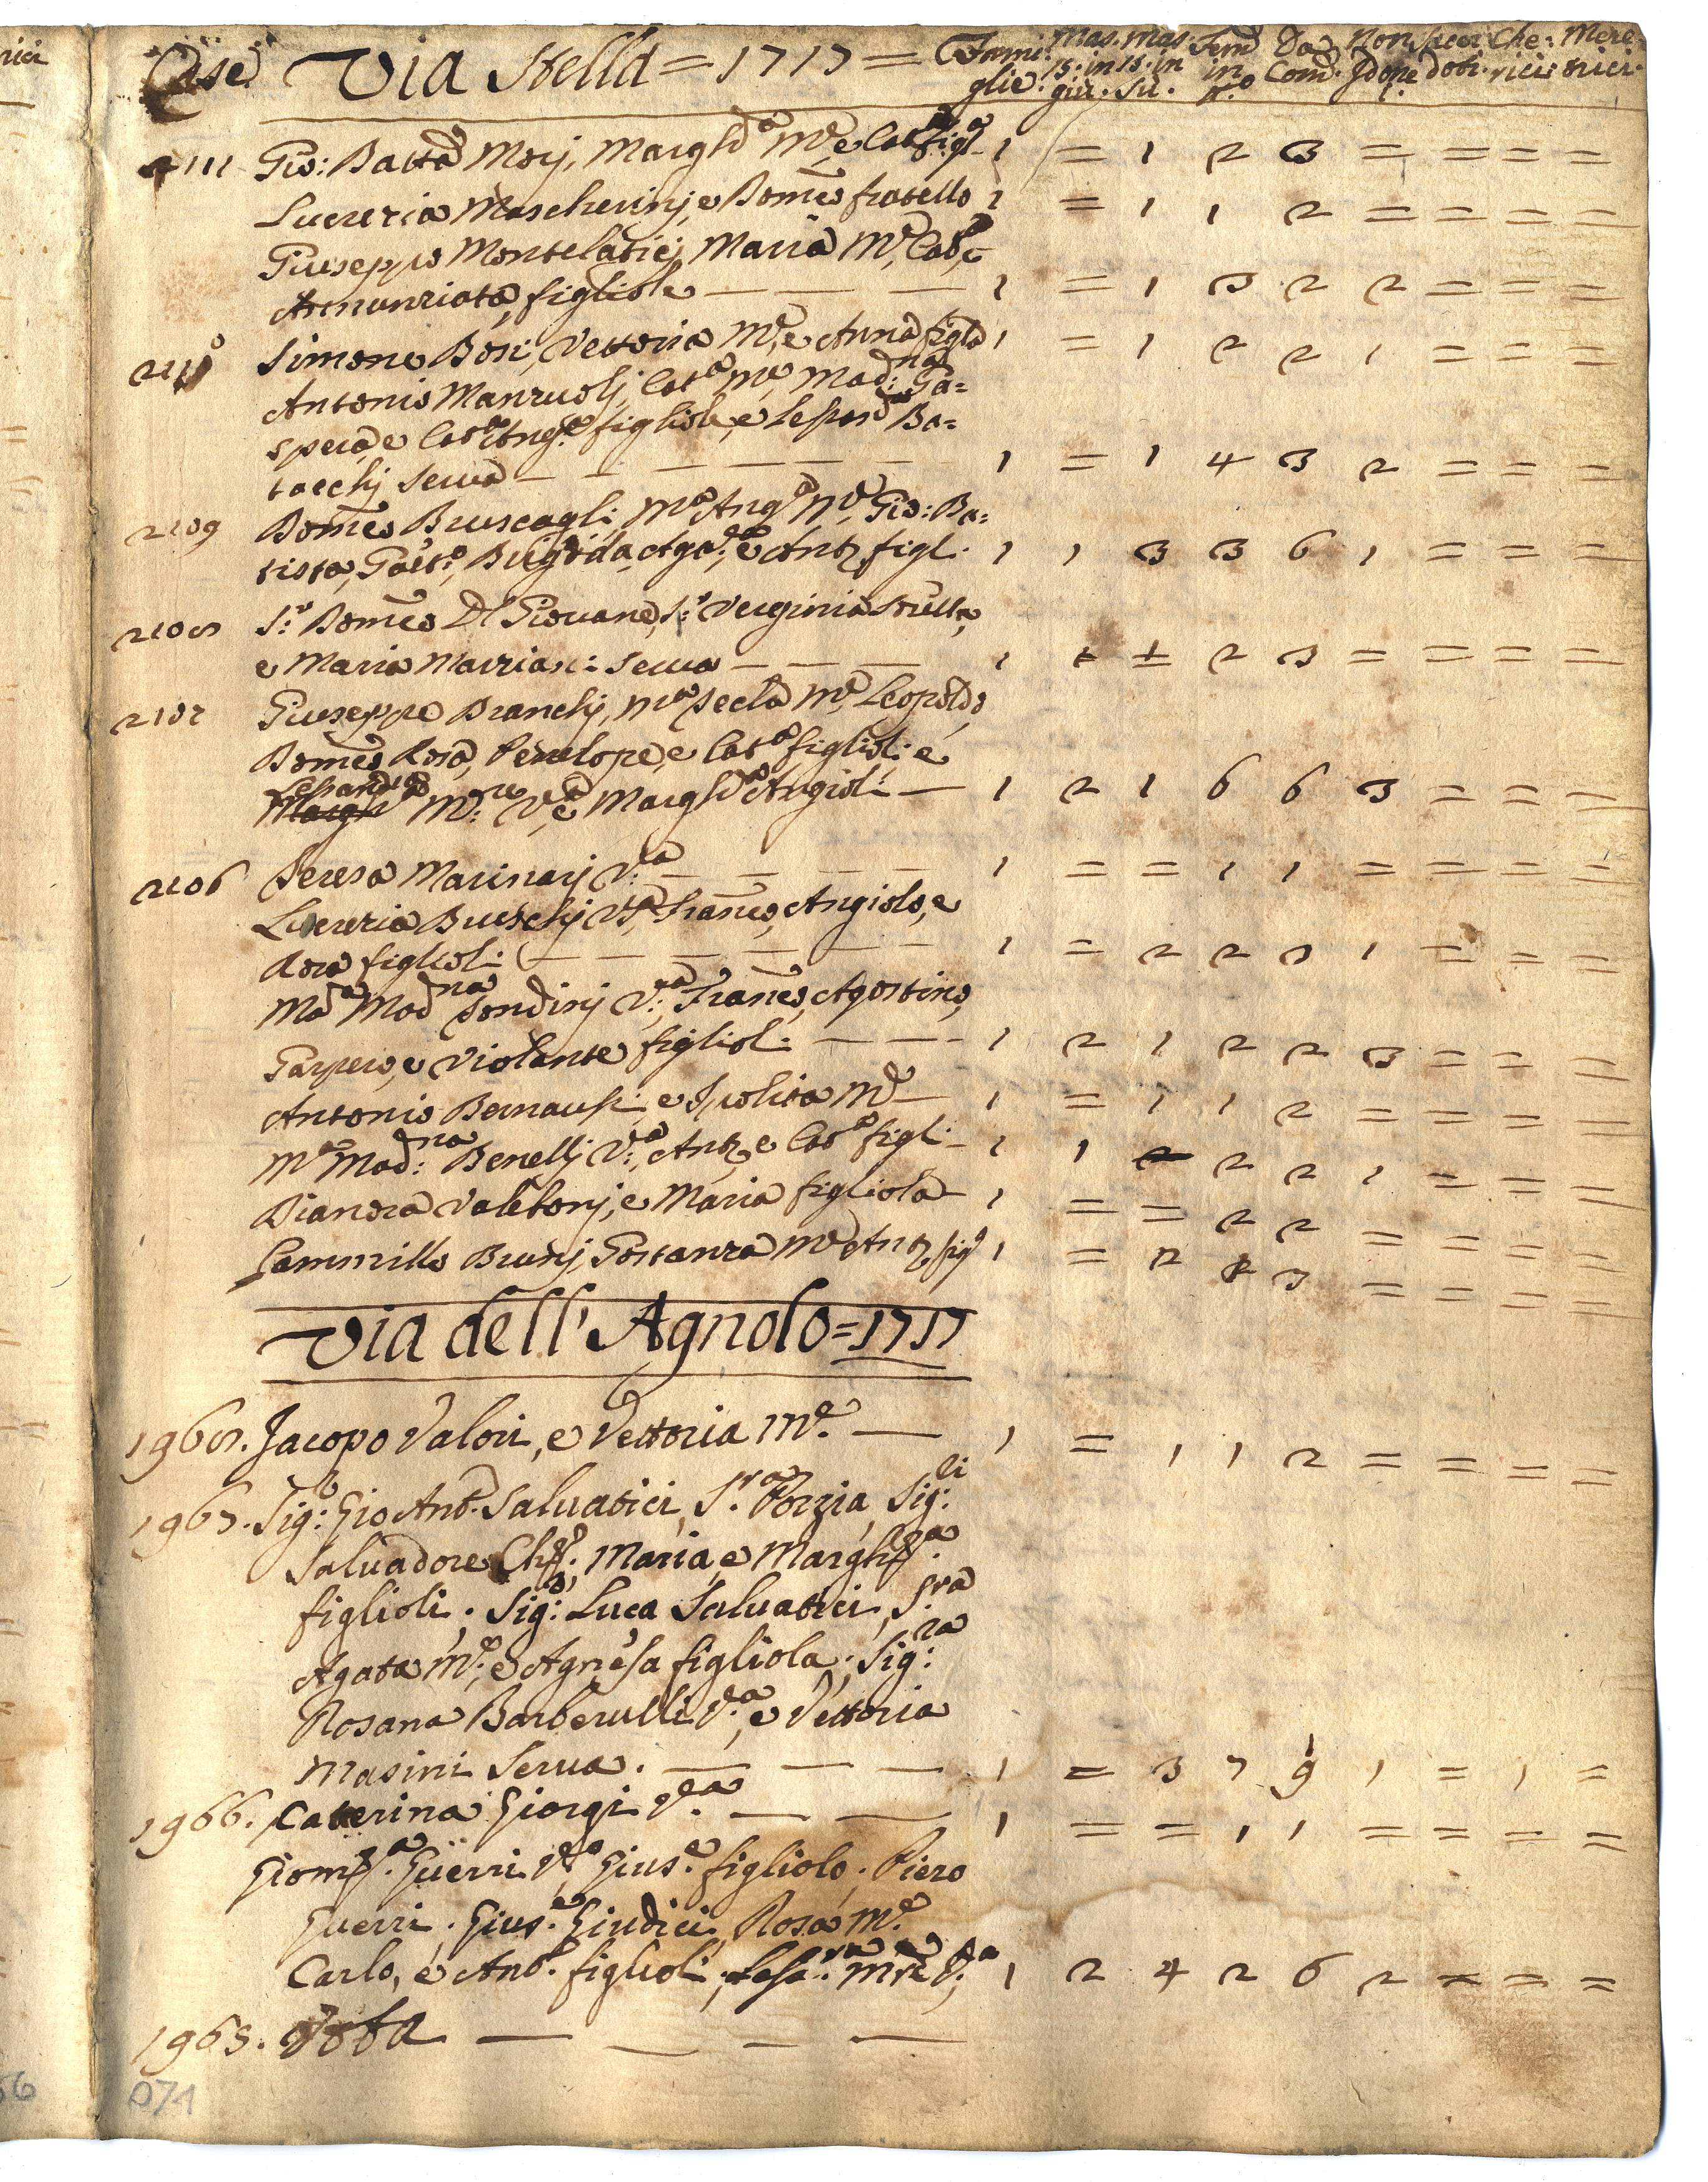 Case Via Stella = 1717 = Fami: glie. Mas. 15. in giù. Mas. 15. in Su. Fem in n.o Da Com. Non Idone Sacer doti. Che: rici. Mere: trici.
2111 Gio: Batta Morj, Margh.a M.e, e Cat.a figl.a 1 = 1 2 3 = = = =
Lucrezia Mascherinj, e Dom.co fratello 1 = 1 1 2 = = = =
Giuseppe Montelaticj, Maria M.e, Cat.a, e
Annunziata, figliole — — — 1 = 1 3 2 2 = = =
2110 Simone Bosi, Vettoria M.e, e Anna figl.a 1 = 1 2 2 1 = = =
Antonio Manzuolj, Cat.a M.e, Mad:na Ga=
spera, e Cat.a Ang.a figliole, e Bo=
tacchj Serva — — — — — — 1 = 1 4 3 2 = = =
2109 Dom.co Bruscagli, M.a Ang.a M.e, Gio: Ba=
tista, Gaet.o, Brigida, Aga.a, e Ant.o figl. 1 1 3 3 6 1 = = =
2108 S.r Dom.co Del Giovane, S.a Verginia Sorella,
e Maria Marrian: Serva — — — 1 = 1 2 3 = = = =
2107 Giuseppe Branchj, M.a Tecla M.e, Leopoldo,
Dom.co, Rosa, Penelope, e Cat.a figlioli: e
Margh M:re V.a, e Margh.a Angioli — 1 2 1 6 6 3 = = =
2106 Teresa Marinarj V:a — — — — 1 = = 1 1 = = = =
Lucrezia Brieschj V.a, Fran.co, Angiolo, e
Rosa figlioli — — — — — — 1 = 2 2 3 1 = = =
M.a Mad.na Tondinj V:a, Fran.co, Agostino,
Gaspero, e Violante figliol: — — — 1 2 1 2 2 3 = = =
Antonio e Ipolita M.e — 1 = 1 1 2 = = = =
M.a Mad:na Benellj V:a, Ant.o, e Cat.a figli — 1 1 = 2 2 1 = = =
Dianora Valetonj, e Maria figliola — 1 = = 2 2 = = = =
Cammillo Brunj, Gostanza M.e, Ant.o fig.o 1 = 2 1 3 = = = =
Via dell' Agnolo = 1717
1968. Jacopo Valori, e Vettoria M.e — 1 = 1 1 2 = = = =
1967. Sig: Gio Ant. Salvatici, S.ra Porzia, Sig:li
Salvadore Ch.o, Maria, e Margh.ta
figlioli. Sig: Luca Salvatici, S.ra
Agata M.e, e Agnesa figliola. Sig:ra
Rosana Barberulli V.a, e Vettoria
Masini Serva. — — — 1 = 3 7 9 1 = 1 =
1966. Caterina Giorgi V.a — — 1 = = 1 1 = = = =
Guerri V.a, Gius.e figliolo. Piero
Guerri. Gius.e Giudici, Rosa M.e
Carlo, e Ant. figlioli, M.re V.a 1 2 4 2 6 2 = = =
1965. Vota — — —
071